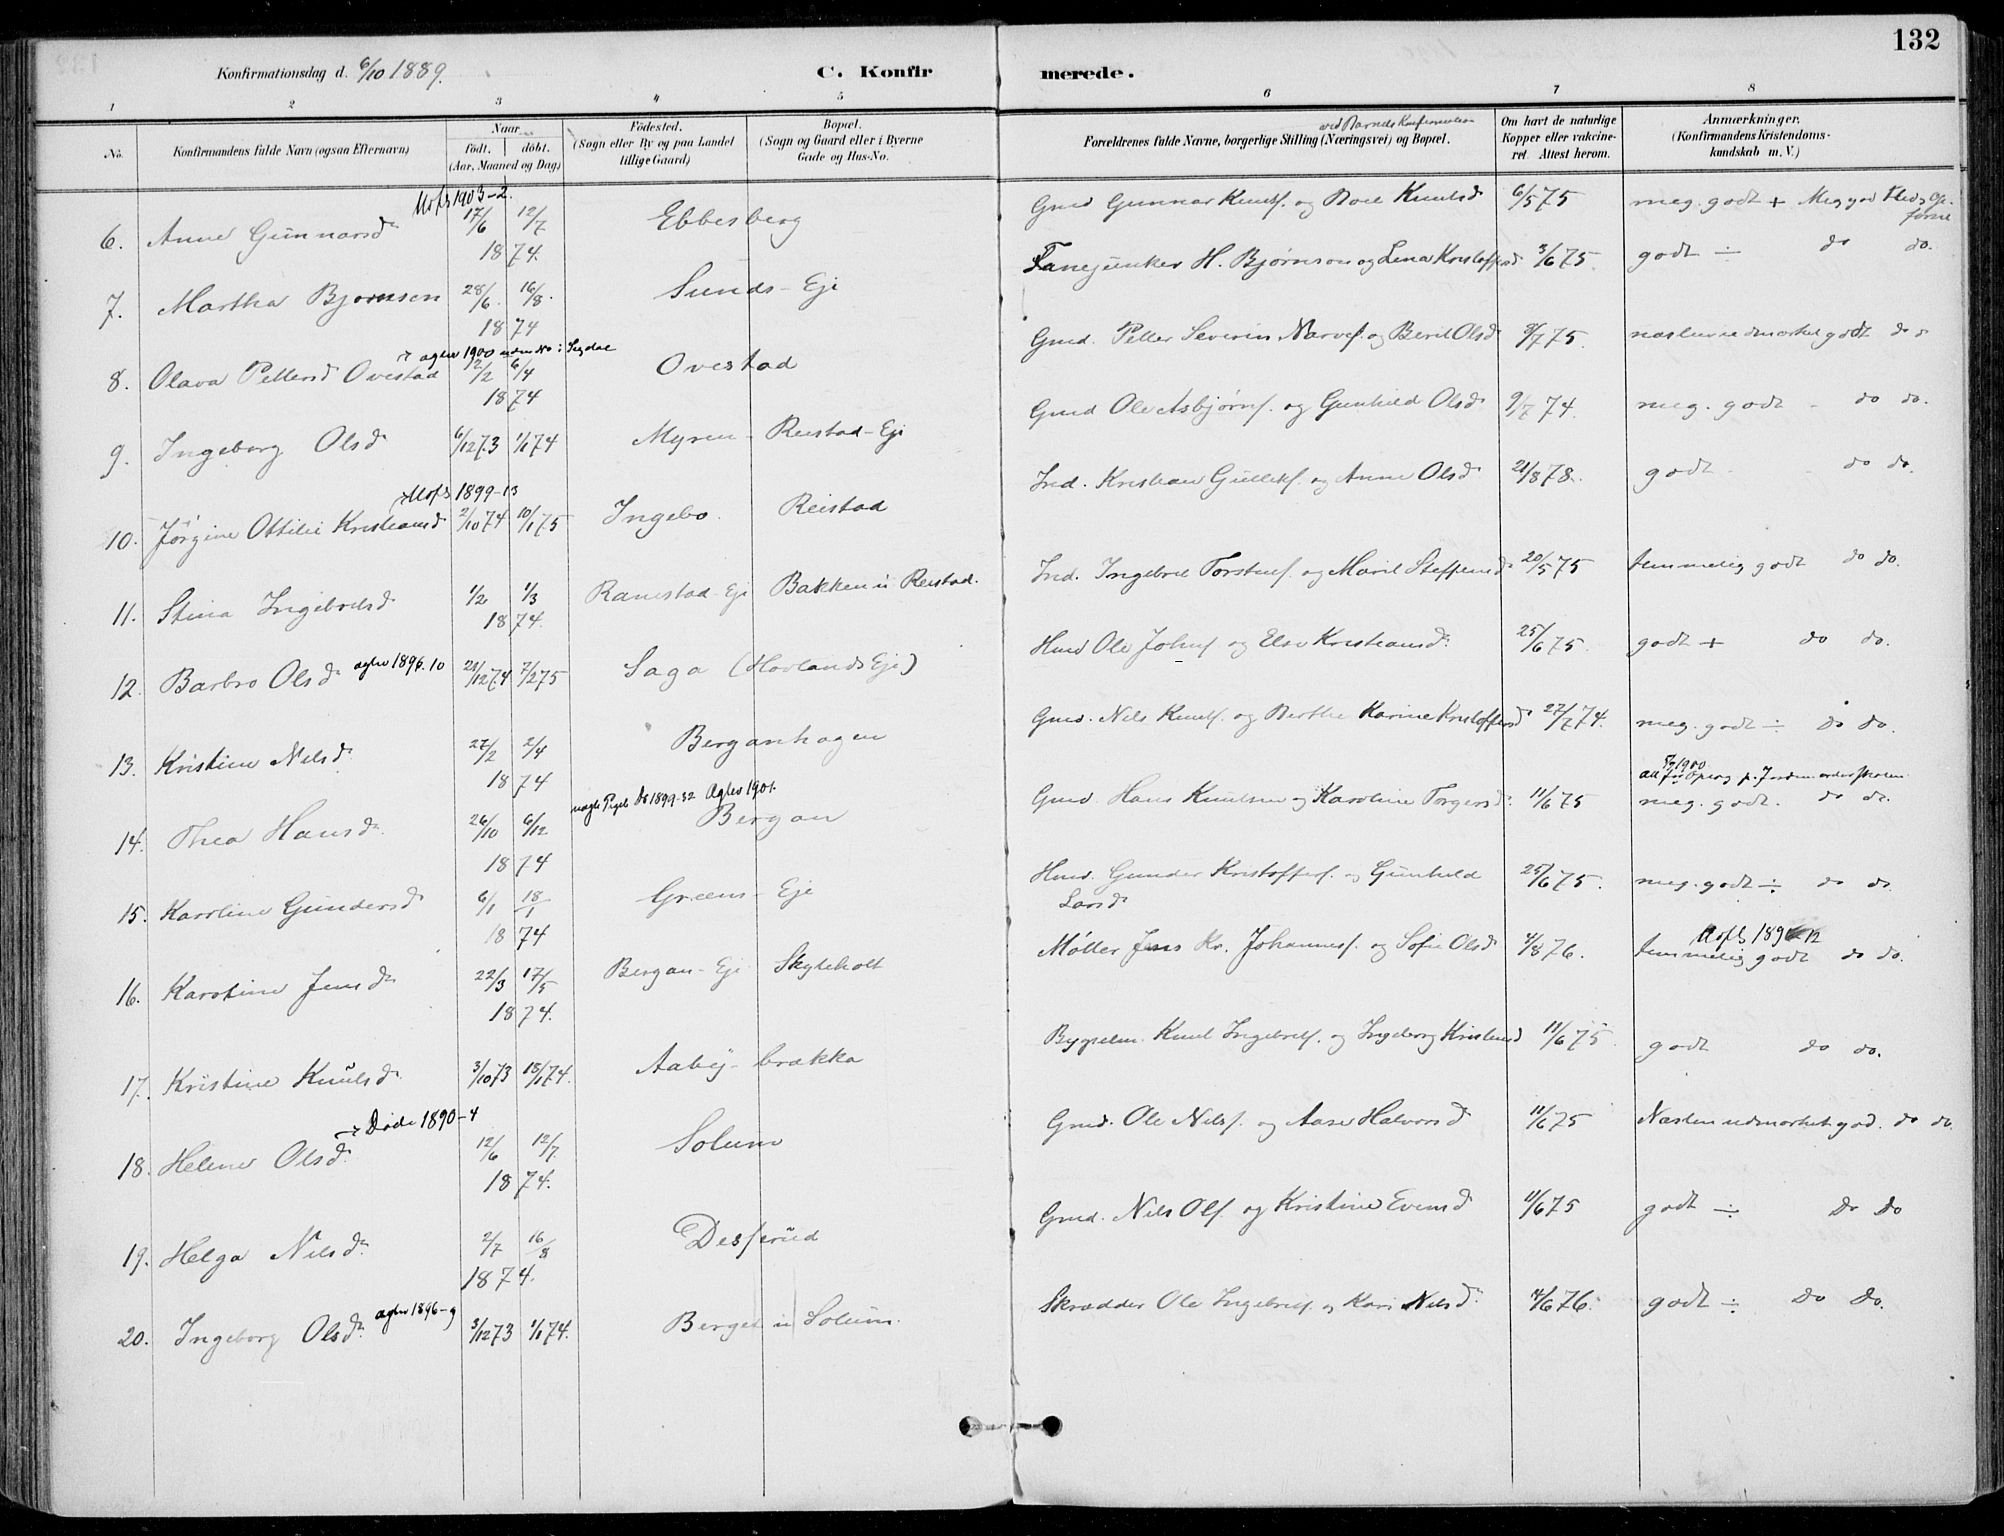 132
Konfirmationsdag d. 6/10 1889.
C. Konfirmerede.
1 2 3 4 5 6 7 8
No.
Konfirmandens fulde Navn (ogsaa Efternavn)
Naar
født. døbt.
(Aar, Maaned og Dag)
Fødested.
(Sogn eller By og paa Landet
tillige Gaard)
Bopæl.
(Sogn og Gaard eller i Byerne
Gade og Hus-No.
ved Barnets Konfirmation
Forældrenes fulde Navne, borgerlige Stilling (Næringsvei) og Bopæl.
Om havt de naturlige
Kopper eller vakcine-
ret. Attest herom.
Anmærkninger.
(Konfirmandens Kristendoms-
kundskab m. V.)
1903-2.
6. Anne Gunnarsd. 17/6 12/7 1874. Ebbesberg Gmd Gunnar Knuts. og Knutsd 6/5 75 meg. godt + Meg god
7. Martha Bjørnsen 28/6 16/8 1874 Sunds-Eje Fanejunker H. Bjørnson og Lena Kristoffersd 3/6 75. godt ÷ do do.
agter 1900 uden No i Sigdal
8. Olava Pettersd Ovestad 12/2 6/4 1874 Ovestad Gmd. Petter Severin Narves. og Berit Olsd 9/7 75. næsten udmærket godt do
9. Ingeborg Olsd 6/12 73 1/1 74 Myren - Reistad-Eje Gmd Ole Asbjørns. og Gunhild Olsd 9/7 74. meg. godt - do do.
1899-13
10. Jørgine Ottilie Kristiansd 2/10 74 10/1 75 Ingebo. Reistad Ind. Kristian Gulliks. og Anne Olsd 21/8 78. godt - do do.
11. Stina Ingebretsd 1/2 1/3 1874. Ranestad-Eje Bakken u Reistad. Ind. Ingebret Torstens. og Marit Steffensd 20/5 75 temmelig godt do do.
12. Barbro Olsd agter 1896.10 21/12 74 7/2 75 Saga (Hovlands Eje) Hmd Ole Johns. og Else Kristiansd. 25/6 75. godt + do do.
13. Kristine Nilsd 27/2 2/4 1874 Berganhagen Gmd. Nils Knuts. og Berthe Karine Kristoffersd 27/7 74. meg. godt ÷ do do.
1899-32 Agter 1901.
1900
14. Thea Hansd. 26/10 6/12 1874 Bergan Gmd. Hans Knutsen og Karoline Torgersd. 11/6 75 meg. godt. do do.
15. Karoline Gundersd 6/1 18/1 1874 Græens-Eje Hmd. Gunder Kristoffers. og Gunhild
Larsd 25/6 75. meg. godt ÷ do do.
16. Karoline Jensd 22/3 17/5 1874. Bergan-Eje Skyteholt Møller Jens Kr. Johannes. og Sofie Olsd 4/8 76. temmelig godt do do.
17. Kristine Knutsd 3/10 73 18/1 74. Aaby-brækka Knut Ingebrets. og Ingeborg 11/6 75. godt do do.
Døde 1890-4
18. Helene Olsd. 12/6 12/7. 1874. Solum Gmd. Ole Nils. og Aase Halvorsd 11/6 75 Næsten udmærket god. do do.
19. Helga Nilsd. 2/7 16/8 1874. Desserud Gmd. Nils Ols. og Kristine Evensd 11/6 75 godt ÷ Do Do
20. Ingeborg Olsd. agter 1896-9 3/12 73 1/1 74. Berget u Solum. Skrædder Ole Ingebrets. og Kari Nilsd. 4/6 76. godt ÷ Do Do.